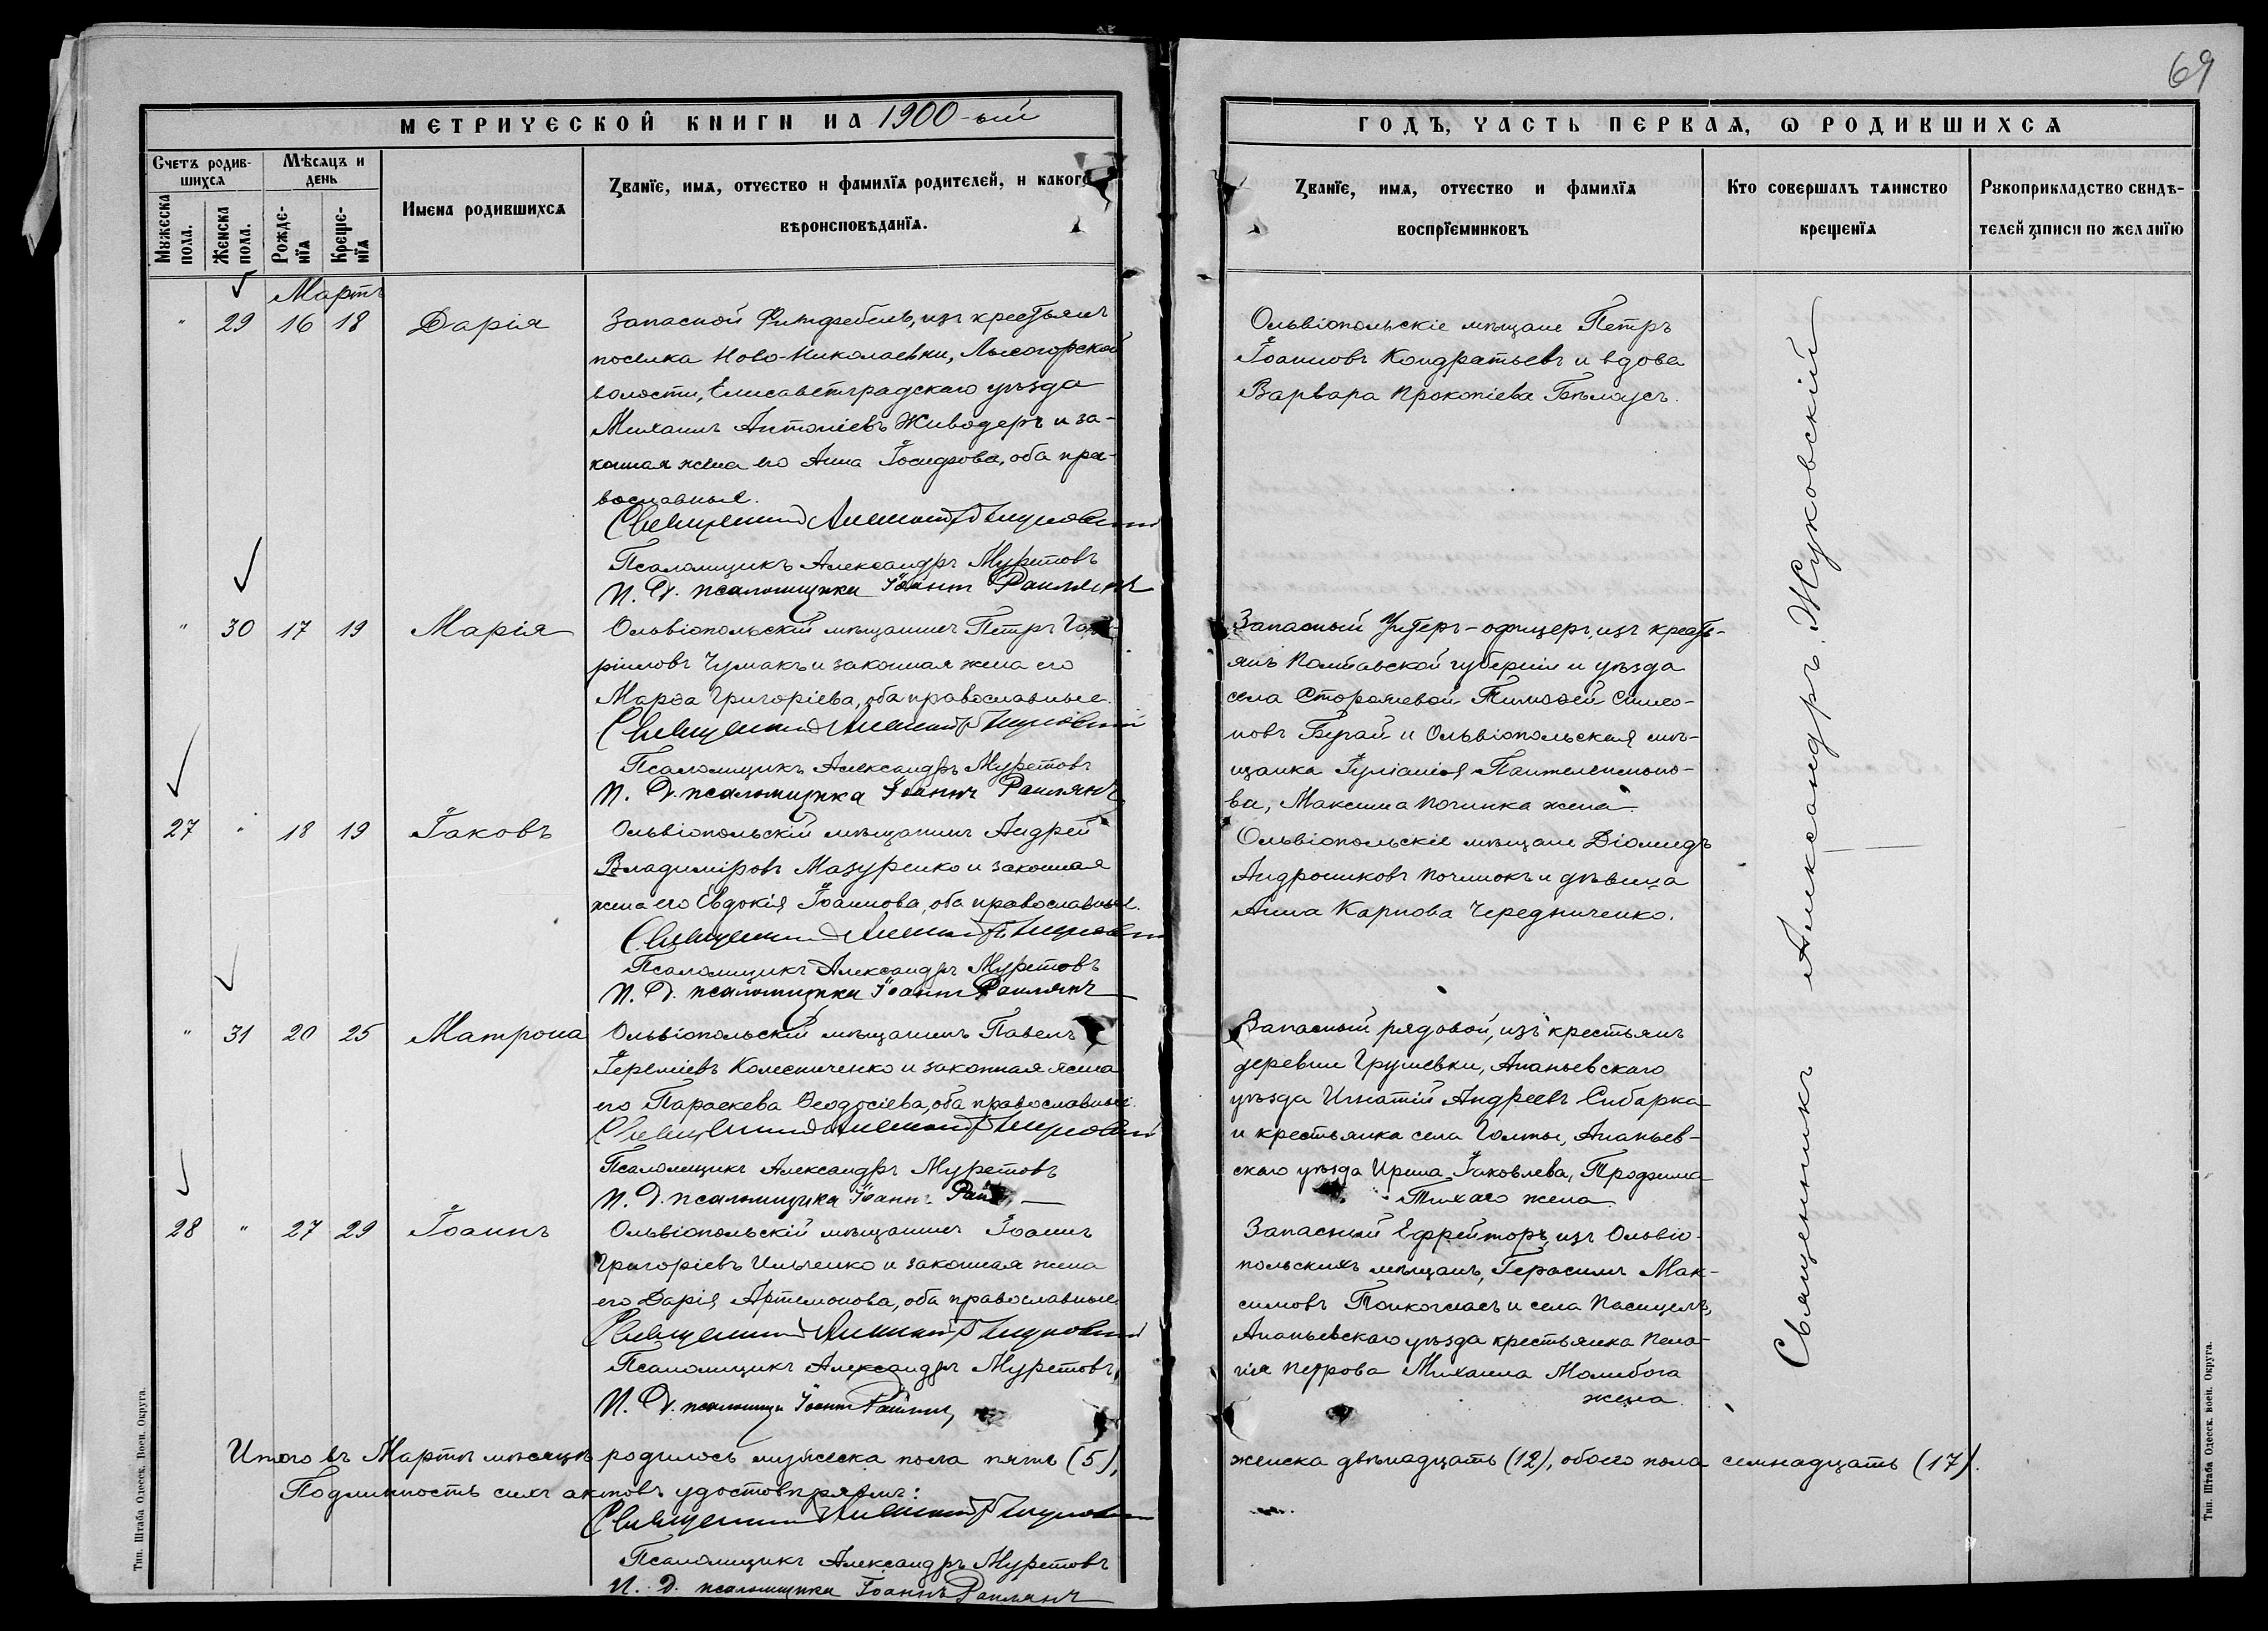 69
МЕТРИЧЕСКОЙ КНИГИ НА 1900-ый
ГОДЪ, ЧАСТЬ ПЕРВАЯ, Ѡ РОДИВШИХСЯ
Счетъ родив-
шихся
Мѣсяцъ и
день
Мужеска
пола.
Женска
пола.
Рожде-
нїя
Креще-
нїя
Имена родившихся
Званїе, имя, отчество и фамилїя родителей, и какого
вѣроисповѣданїя.
Званїе, имя, отчество и фамилїя
воспрїемниковъ
Кто совершалъ таинство
крещенїя
Рукоприкладство свидѣ-
телей записи по желанїю
Мартъ
" 29 16 18 Дарія
Запасной Фельдфебель, изъ крестьянъ
поселка Ново-Николаевки, Лысогорской
волости, Елисаветградскаго уѣзда
Михаилъ Антоніевъ Живодеръ и за-
конная жена его Анна Іосифова, оба пра-
вославные.
Священникъ Александръ Жуковскій
Псаломщикъ Александръ Муретовъ
И. Д. псаломщика Іоаннъ
Ольвіопольскіе мѣщане Петръ
Іоанновъ Кондратьевъ и вдова
Варвара Прокопіева
" 30 17 19 Марія
Ольвіопольскій мѣщанинъ Петръ Гав-
ріиловъ Чумакъ и законная жена его
Марѳа Григоріева, оба православные.
Священникъ Александръ Жуковскій
Псаломщикъ Александръ Муретовъ
И. Д. псаломщика Іоаннъ
Запасный Унтеръ-офицеръ, изъ кресть-
янъ Полтавской губерніи и уѣзда
села Сторожевой Тимоѳей Симео-
новъ Бугай и Ольвіопольская мѣ-
щанка Іуліанія Пантелеимоно-
ва, Максима Починка жена.
27 " 18 19 Іаковъ
Ольвіопольскій мѣщанинъ Андрей
Владиміровъ Мазуренко и законная
жена его Евдокія Іоаннова, оба православные.
Священникъ Александръ Жуковскій
Псаломщикъ Александръ Муретовъ
И. Д. псаломщика Іоаннъ
Ольвіопольскіе мѣщане Діомидъ
Андрониковъ Починокъ и дѣвица
Анна Карпова Чередниченко.
" 31 20 25 Матрона
Ольвіопольскій мѣщанинъ Павелъ
Іереміевъ Колесниченко и законная жена
его Параскева Ѳеодосіева, оба православные.
Священникъ Александръ Жуковскій
Псаломщикъ Александръ Муретовъ
И. Д. псаломщика Іоаннъ
Запасный рядовой, изъ крестьянъ
деревни Грушевки, Ананьевскаго
уѣзда Игнатій Андреевъ Сибарка
и крестьянка села Голты, Ананьев-
скаго уѣзда Ирина Іаковлева, Трофима
Тихаго жена
28 " 27 29 Іоаннъ
Ольвіопольскій мѣщанинъ Іоаннъ
Григоріевъ Ильченко и законная жена
его Дарія Артемонова, оба православные
Священникъ Александръ Жуковскій
Псаломщикъ Александръ Муретовъ
И. Д. псаломщ Іоаннъ
Запасный Ефрейторъ, изъ Ольвіо-
польскихъ мѣщанъ, Герасимъ Мак-
симовъ и села Пасицелъ,
Ананьевскаго уѣзда крестьянка Пела-
гія Петрова Михаила Молибога
жена.
Священникъ Александръ Жуковскій
Итого въ Мартѣ мѣсяцѣ родилось мужеска пола пять (5),
женска двѣнадцать (12), обоего пола семнадцать (17).
Подлинность сихъ актовъ удостовѣряемъ:
Священникъ Александръ Жуковскій
Псаломщикъ Александръ Муретовъ
И. Д. псаломщика Іоаннъ
Тип. Штаба Одесск. Воен. Округа.
Тип. Штаба Одесск. воен. Округа.